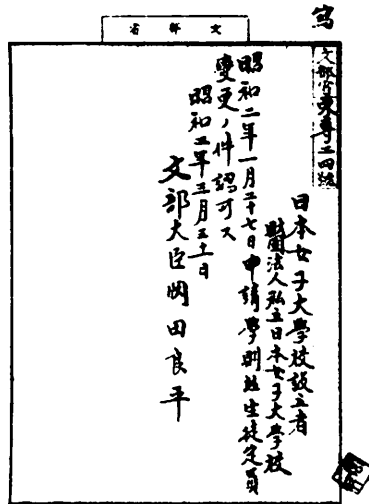 文部省
寫
文部省東専二四號
日本女子大學校設立者
財團法人私立日本女子大學校
昭和二年一月二十七日申請學則並生徒定員
變更ノ件認可ス
昭和二年三月三十一日
文部大臣岡田良平